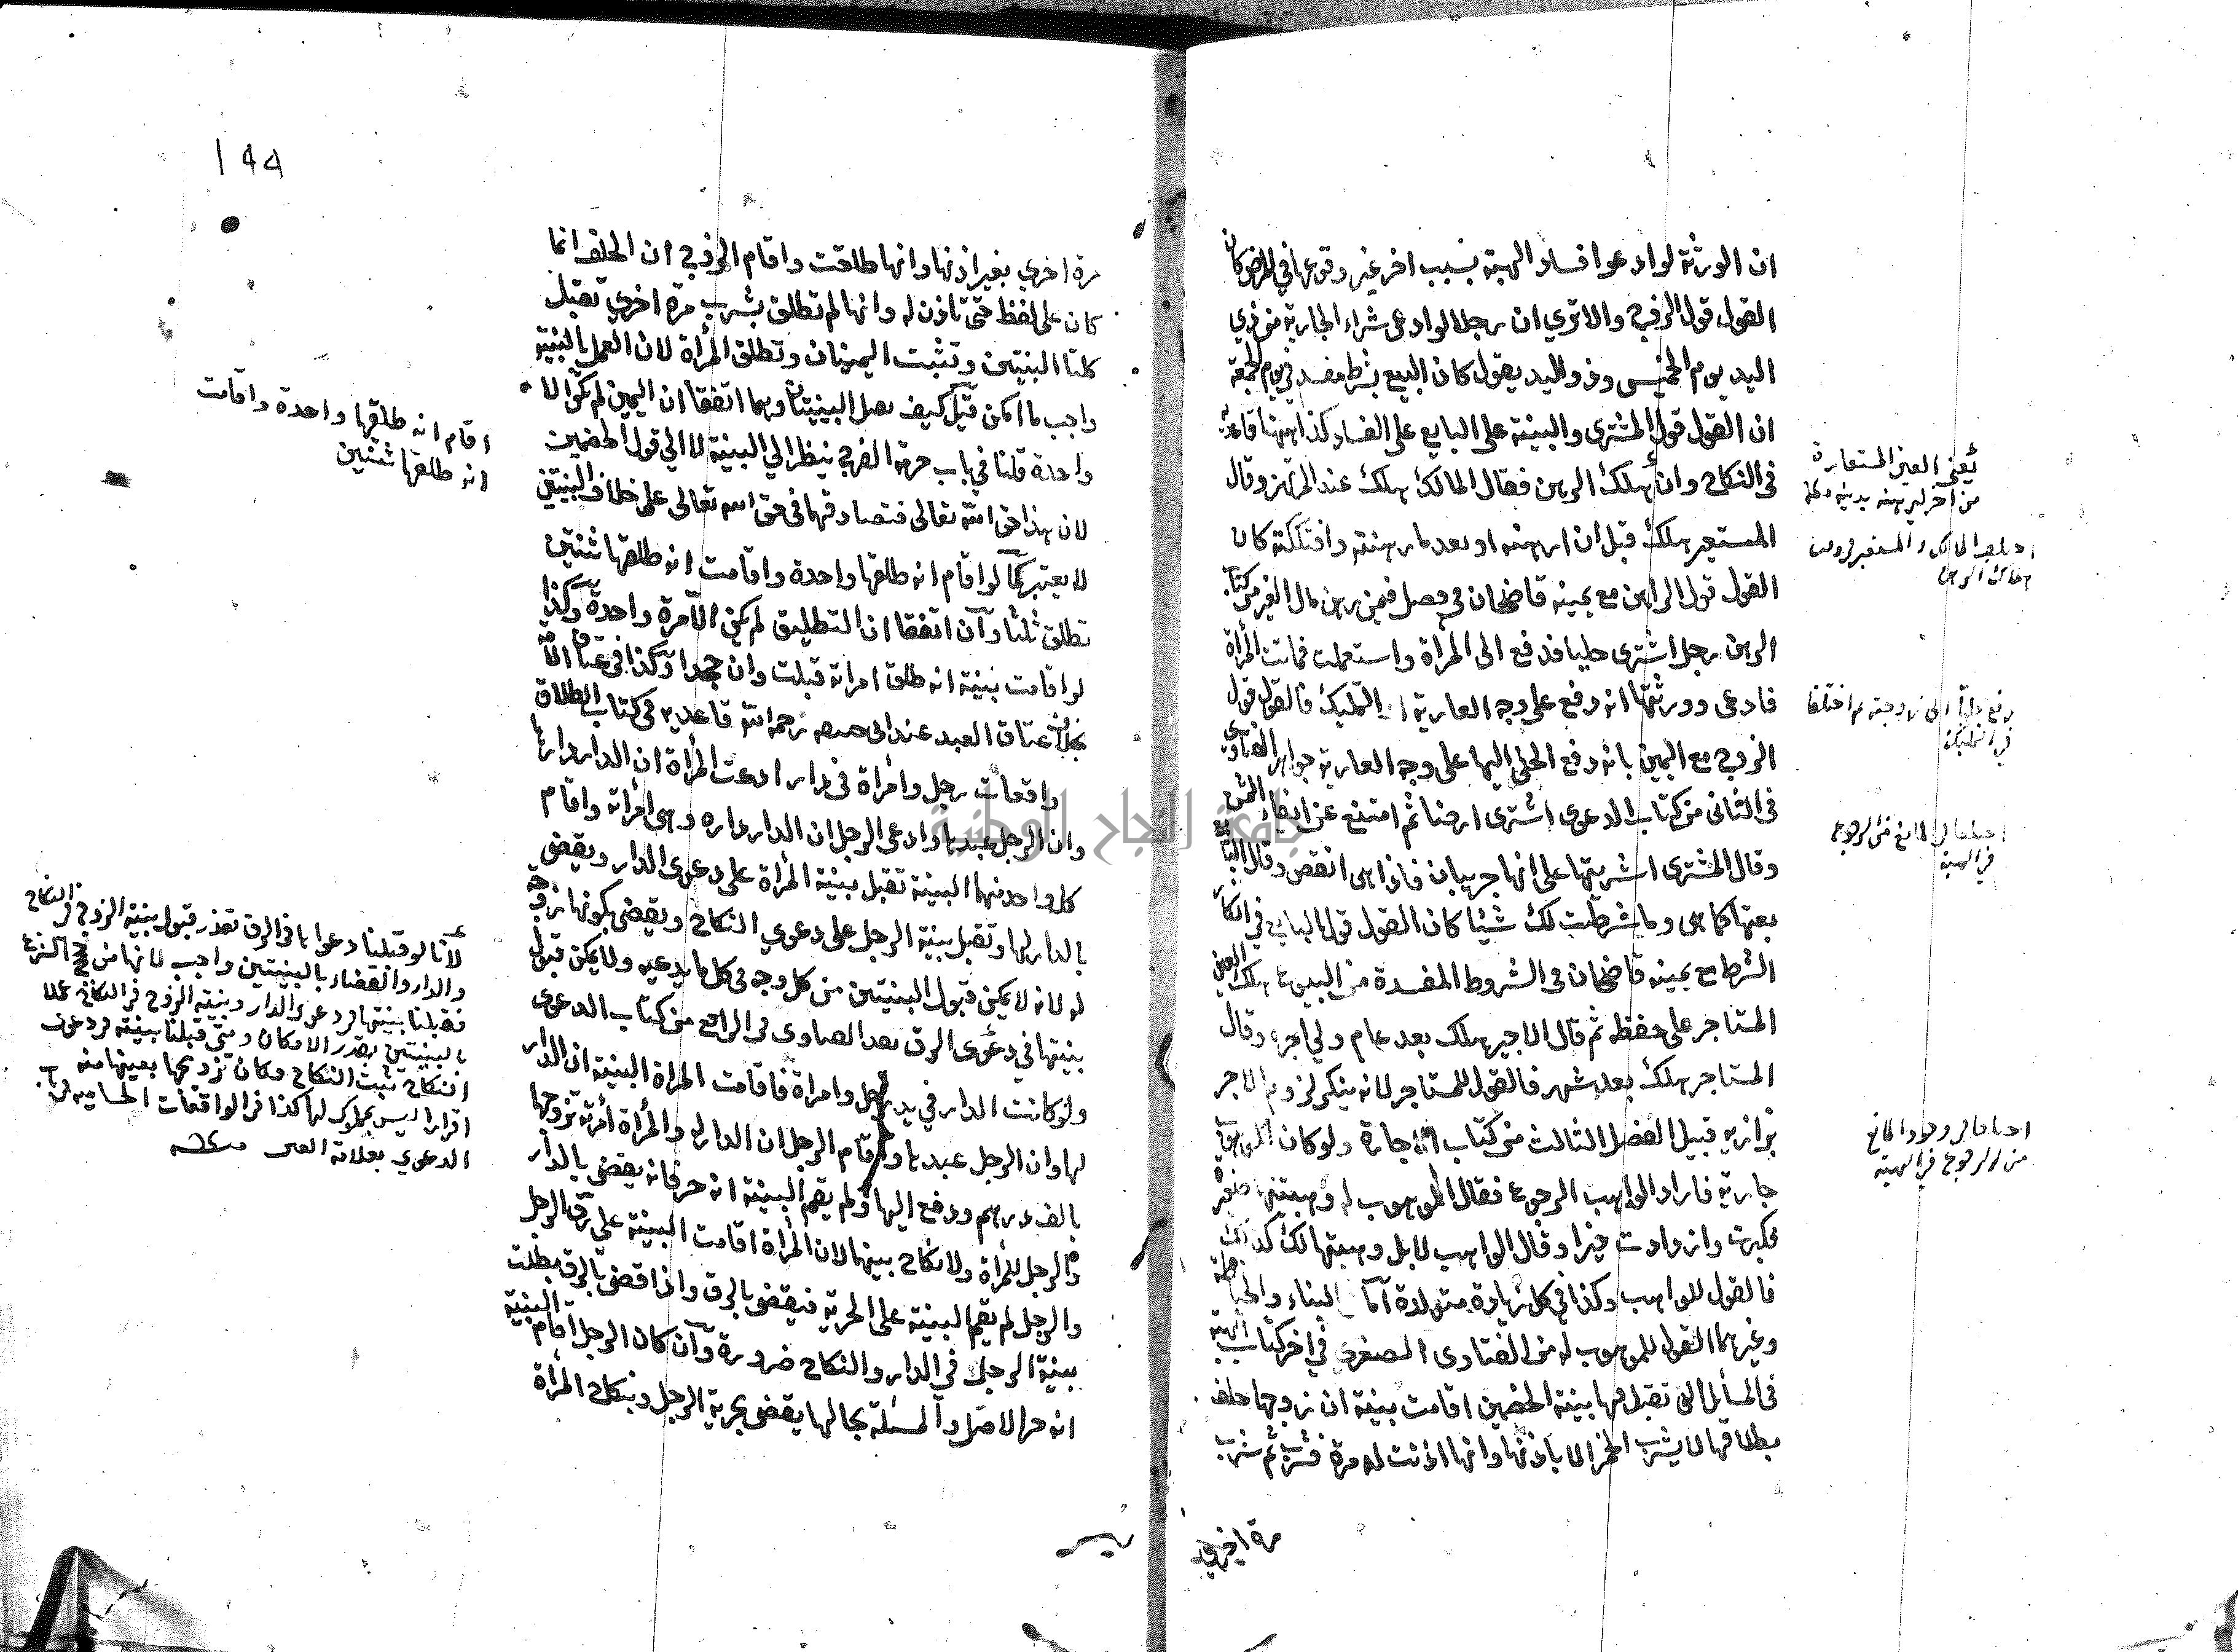 ان الورثة لو ادعوا فساد الهبة بسبب اخر غير وقوعها في المرض كان
القول قول الزوج والا ترى ان رجلا لو ادعى شراء الجارية من ذي
اليد يوم الخميس وذو اليد يقول كان البيع بشرط مفسد في يوم الجمعة
ان القول قول المشترى والبينة على البايع على الفساد كذا ههنا قاعديه
فى النكاح وان هلك الرهن فقال المالك هلك عند المرتهن وقال
المستعير هلك قبل ان ارهنه او بعد ما رهنته وافتككته كان
القول قول الراهن مع يمينه قاضيخان فى فصل فيمن يرهن مال الغير من كتاب
الرهن رجل اشترى حليا فدفع الى المراة واستعملت فماتت المراة
فادعى وورثتها انه دفع على وجه العارية او التمليك فالقول قول
الزوج مع اليمين بانه دفع الحلي اليها على وجه العارية جواهر الفتاوى
فى الثانى من كتاب الدعوى اشترى ارضا ثم امتنع عن ايفاء الثمن
وقال المشترى اشتريتها على انها جريبان فاذا هى انقص وقال البايع
بعتها كما هى وما شرطت لك شيئا كان القول قول البايع في انكار
الشرط مع يمينه قاضيخان فى الشروط المفسدة من البيوع هلك العين
المستاجر على حفظه ثم قال الاجير هلك بعد عام ولي اجره وقال
المستاجر هلك بعد شهر فالقول للمستاجر لانه ينكر لزوم الاجر
بزازيه قبيل الفصل الثالث من كتاب الاجارة ولو كان الموهوب
جارية فاراد الواهب الرجوع فقال الموهوب له وهبتنها صغيرة
فكبرت وازدادت خيرا وقال الواهب لا بل وهبتها لك كذلك
فالقول للواهب وكذا في كل زيادة متولدة اما البناء والخياطة
وغيرهما القول للموهوب له من الفتاوى الصغرى في اخر كتاب الهبة
فى المسايل التى تقبل فيها بينة الخصمين اقامت بينة ان زوجها حلف
بطلاقها لا يشرب الخمر الا باذنها وانها اذنت له مرة فشرب ثم شرب
مرة اخرى
يعنى العين المستعارة
من اخر ليرهنه بدينه
رفع حليا الى زوجته ثم اختلفا
فى التمليك
فى الهبة
من الرجوع فى الهبة
١٩٩
مرة اخرى بغير اذنها وانها طلقت واقام الزوج ان الحلف انما
كان على لفظ حتى تاذن له وانها لم تطلق بشرب مرة اخرى تقبل
كلتا البينتين وتثبت اليمينان وتطلق المراة لان العمل بالبينة
واجب ما امكن قيل كيف يعمل البينيتان وهما اتفقا ان اليمين لم تكن الا
واحدة قلنا في باب حرمة الفرج ينظر الي البينة لا الي قول الخصمين
لان هذا حق الله تعالى فتصادقهما فى حق الله تعالى على خلاف البينتين
لا يعتبر كما لو اقام انه طلقها واحدة واقامت انه طلقها ثنتين
تطلق ثلثا وان اتفقا ان التطليق لم يكن الا مرة واحدة وكذا
لو اقامت بينة انه طلق امراته قبلت وان جحدا وكذا فى عتاق الامة
بخلاف عتاق العبد عند ابى حنيفه رحمه الله قاعديه فى كتاب الطلاق
واقعات رجل وامراة فى دار ادعت المراة ان الدار دارها
وان الرجل عبدها وادعى الرجل ان الدار داره وهى امراته واقام
كل واحد منهما البينة تقبل بينة المراة على دعوى الدار ويقضى
بالدار لها وتقبل بينة الرجل على دعوي النكاح ويقضى بكونها زوجة
له لانه لا يمكن قبول البينتين من كل وجه فى كل ما يدعيه ولا يمكن قبول
بينتها في دعوى الرق بعد الصاوى فى الرابع من كتاب الدعوى
ولو كانت الدار في يد رجل وامراة فاقامت المراة البينة ان الدار
لها وان الرجل عبدها واقام الرجل ان الدار له والمراة امرته تزوجها
بالف درهم ودفع اليها ولم يقم البينة انه حر فانه يقضى بالدار
والرجل للمراة ولا نكاح بينهما لان المراة اقامت البينة على رق الرجل
والرجل لم يقم البينة على الحرية فيقضى بالرق واذا قضى بالرق بطلت
بينة الرجل فى الدار والنكاح ضرورة وان كان الرجل اقام البينة
انه حر الاصل والمسئلة بحالها يقضى بحرية الرجل وبنكاح المراة
اقام انه طلقها واحدة واقامت
انه طلقها ثنتين
لانا لو قبلنا دعواها فى الرق تعذر قبول بينة الزوج فى النكاح
والدار والقضاء بالبينتين واجب لانها من حجج الشرع
فقبلنا بينتها فى دعوى الدار وبينة الزوج فى النكاح عملا
بالبينتين بقدر الامكان ومتى قبلنا بينته فى دعوى
النكاح يثبت النكاح وكان تزويجها بعينها منه
اقرارا ليس بمملوك لها كذا فى الواقعات الحساميه فى باب
الدعوي بعلامة العين
جامعة النجاح الوطنية